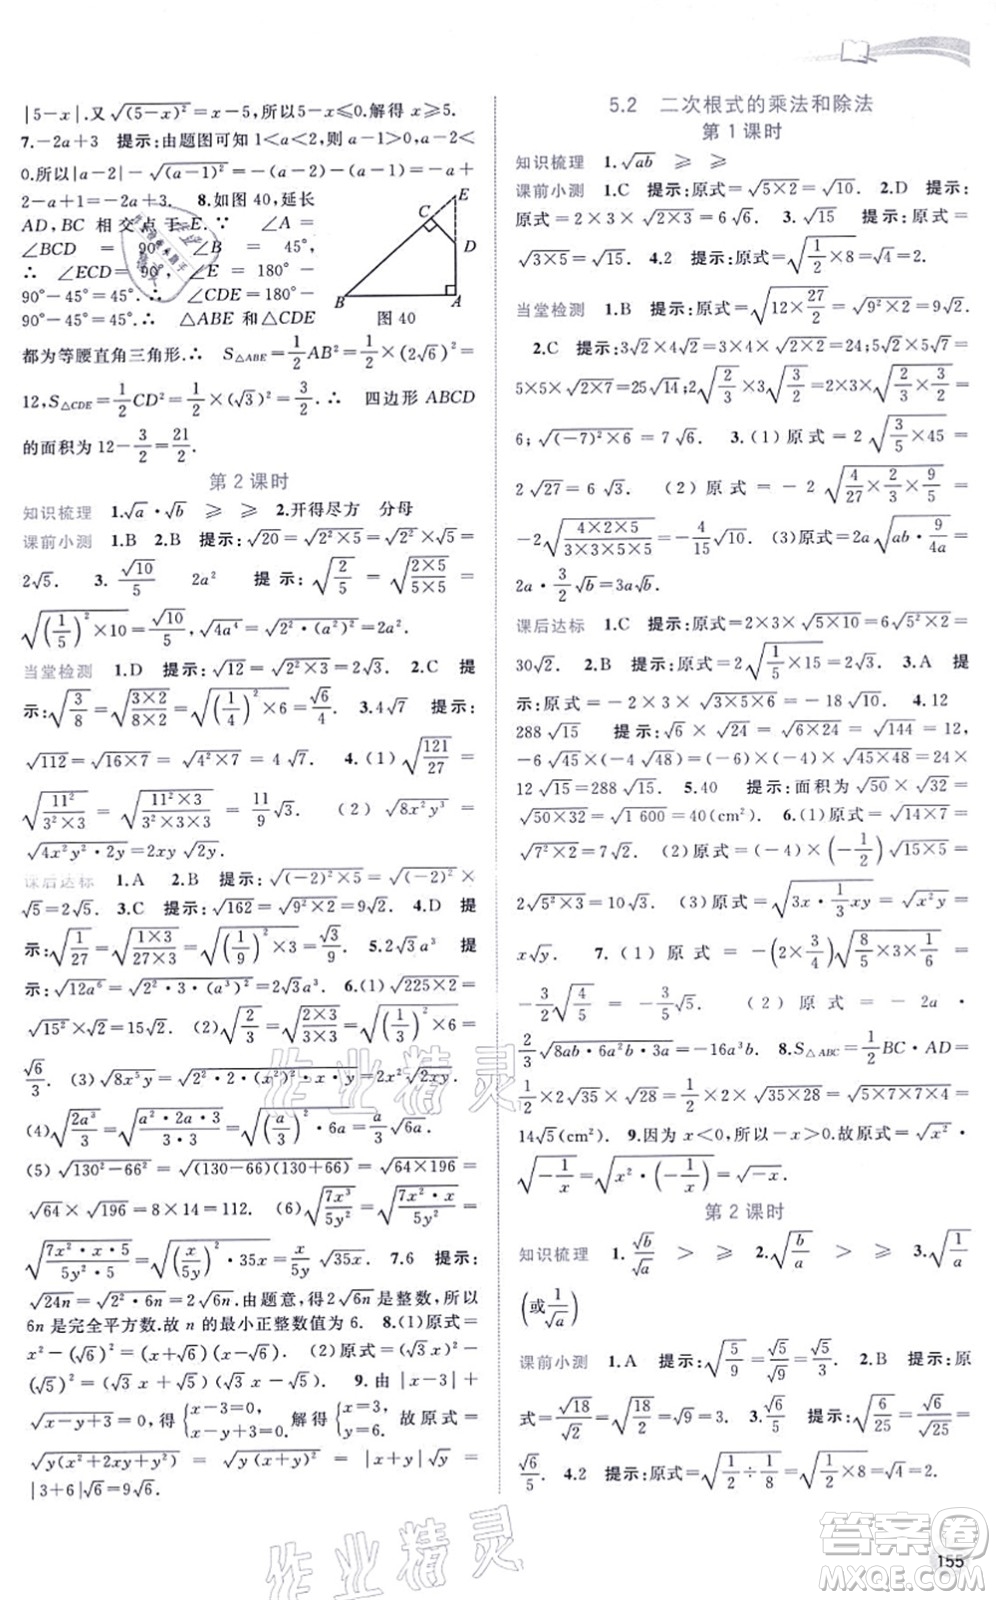 |5-x|.又√(5-x)²=x-5,所以5-x≤0.解得x≥5.
7.-2a+3 提示:由题图可知1<a<2,则a-1>0,a-2<
0.所以|a-2|-√(a-1)²=-(a-2)-(a-1)=-a+
2-a+1=-2a+3. 8.如图40,延长
AD,BC相交点于E.∵ ∠A=
∠BCD = 90°,∠B = 45°,
∴ ∠ECD=90°,∠E=180°-
90°-45°=45°.∠CDE=180°-
90°-45°=45°.∴ △ABE和△CDE
图40
都为等腰直角三角形.∴ S△ABE=1/2AB²=1/2×(2√6)²=
12,S△CDE=1/2CD²=1/2×(√3)²=3/2.∴ 四边形ABCD
的面积为12-3/2=21/2.
第2课时
知识梳理 1.√a·√b ≥ ≥ 2.开得尽方 分母
课前小测 1.B 2.B 提示:√20=√2²×5=√2²×√5=
2√5. 3.√10/5 2a² 提示:√(2/5)=√((2×5)/(5×5))=
√((1/5)²×10)=√10/5,√4a⁴=√2²·(a²)²=2a².
当堂检测 1.D 提示:√12=√2²×3=2√3. 2.C 提
示:√(3/8)=√((3×2)/(8×2))=√((1/4)²×6)=√6/4. 3.4√7 提示:
√112=√16×7=√4²×7=4√7. 4.(1)√(121/27)=
√(11²/(3²×3))=√((11²×3)/(3²×3×3))=11/9√3. (2)√8x²y³=
√4x²y²·2y=2xy√2y.
课后达标 1.A 2.B 提示:√(-2)²×5=√(-2)²×
√5=2√5. 3.C 提示:√162=√9²×2=9√2. 4.D 提
示:√(1/27)=√((1×3)/(27×3))=√((1/9)²×3)=√3/9. 5.2√3a³ 提
示:√12a⁶=√2²·3·(a³)²=2√3a³. 6.(1)√225×2=
√15²×√2=15√2. (2)√(2/3)=√((2×3)/(3×3))=√((1/3)²×6)=
√6/3. (3)√8x⁵y=√2²·2·(x²)²·xy=2x²√2xy.
(4)√(2a³/3)=√((a²·2a·3)/(3·3))=√((a/3)²·6a)=a/3√6a.
(5)√130²-66²=√(130-66)(130+66)=√64×196=
√64×√196=8×14=112. (6)√(7x³/5y)=√((7x²·x)/5y)=
√((7x²·x·5y)/(5y²·5))=√((x/5y)²·35xy)=x/5y√35xy. 7.6 提示:
√24n=√2²·6n=2√6n.由题意,得2√6n是整数,所以
6n是完全平方数.故n的最小正整数值为6. 8.(1)原式=
x²-(√6)²=(x+√6)(x-√6). (2)原式=(√3x)²-
(√5)²=(√3x+√5)(√3x-√5). 9.由|x-3|+
√x-y+3=0,得{x-3=0,x-y+3=0.解得{x=3,y=6.故原式=
√y(x²+2xy+y²)=√y(x+y)²=|x+y|√y=
|3+6|√6=9√6.
5.2 二次根式的乘法和除法
第1课时
知识梳理 1.√ab ≥ ≥
课前小测 1.C 提示:原式=√5×2=√10. 2.D 提示:
原式=2×3×√2×3=6√6. 3.√15 提示:原式=
√3×5=√15. 4.2 提示:原式=√(1/2×8)=√4=2.
当堂检测 1.B 提示:原式=√(12×27/2)=√9²×2=9√2.
2.C 提示:3√2×4√2=3×4×√2×2=24;5√2×5√7=
5×5×√2×7=25√14;2√(2/3)×3√(3/2)=2×3×√(2/3×3/2)=
6;√(-7)²×6=7√6. 3.(1)原式=2√(3/5×45)=
2√27=6√3. (2)原式=-2√(4/27×2/3×9/5)=
-2√((4×2×5)/(3×3×5×5))=-4/15√10. (3)原式=2a√(ab·9/4a)=
2a·3/2√b=3a√b.
课后达标 1.C 提示:原式=2×3×√5×10=6√5²×2=
30√2. 2.B 提示:原式=2√(1/5×15)=2√3. 3.A 提
示:原式=-2×3×√3×5×6=-18√10. 4.12
288√15 提示:√6×√24=√6×24=√144=12,
-6√45×(-4√48)=-6×(-4)×√45×48=24×
12√15=288√15. 5.40 提示:面积为√50×√32=
√50×32=√1 600=40(cm²). 6.(1)原式=√14×7=
√7²×2=7√2. (2)原式=(-4)×(-1/2)√15×5=
2√5²×3=10√3. (3)原式=√(3x·1/3xy)=√x²y=
x√y. 7.(1)原式=-(2×3/4)√(8/5×3×1/6)=
-3/2√(4/5)=-3/5√5. (2)原式=-2a·
1/4√8ab·6a²b·3a=-16a³b. 8.S△ABC=1/2BC·AD=
1/2×√28=1/2×√35×28=1/2×√5×7×7×4=
14√5(cm²). 9.因为x<0,所以-x>0.故原式=√x²·
√(-1/x)=√(x²·(-1/x))=√-x.
第2课时
知识梳理 1.√b/√a > ≥ 2.√(b/a) ≥ > 3.√(1/a)
(或1/√a)
课前小测 1.A 提示:√(5/9)=√5/√9=√5/3. 2.B 提示:原
式=√18/√2=√(18/2)=√9=3. 3.√6/5 提示:√(6/25)=√6/√25=
√6/5. 4.2 提示:原式=√(1/2÷1/8)=√(1/2×8)=√4=2.
作业精灵
作业精灵
答案圈
MXQE.COM
155